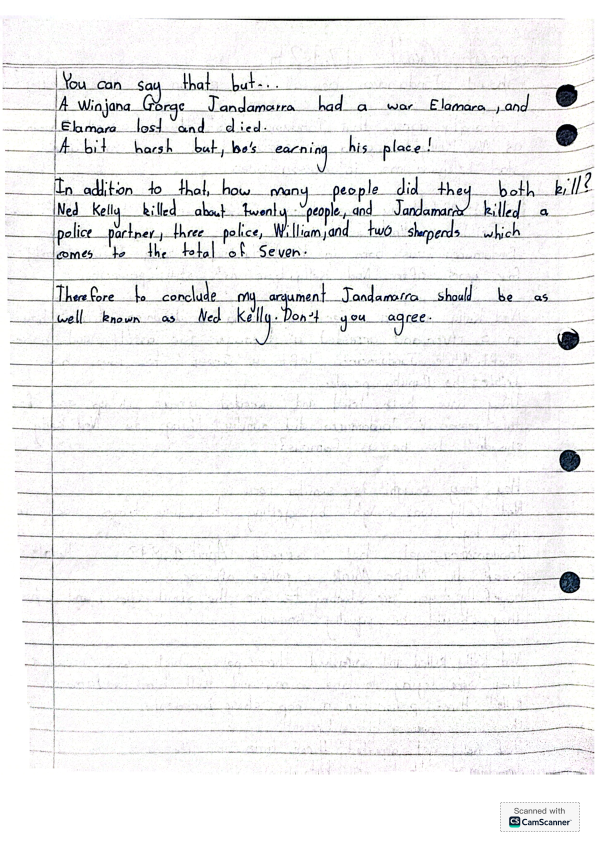 You can say that but...
A Winjana Gorge Jandamarra had a war Elamara, and
Elamara lost and died.
A bit harsh but, he's earning his place!
In addition to that, how many people did they both kill?
Ned Kelly killed about twenty people, and Jandamarra killed a
police partner, three police, William, and two sherperds which
comes to the total of Seven.
Therefore to conclude my argument Jandamarra should be as
well known as Ned Kelly. Don't you agree.
Scanned with
CS CamScanner